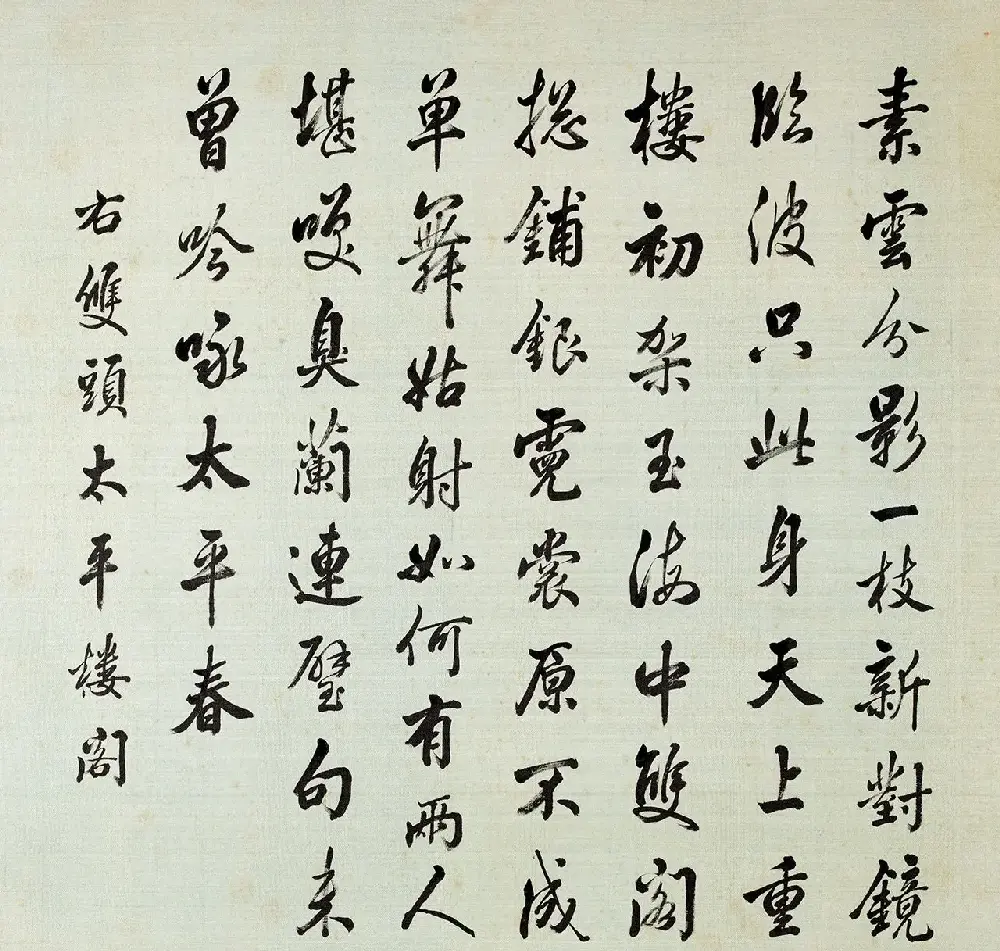 素雲分影一枝新對鏡
臨波只此身天上重
樓初架玉海中雙閣
摠鋪銀霓裳原不成
單舞姑射如何有兩人
堪嘆臭蘭連璧句未
曾吟咏太平春
右雙頭太平楼閣